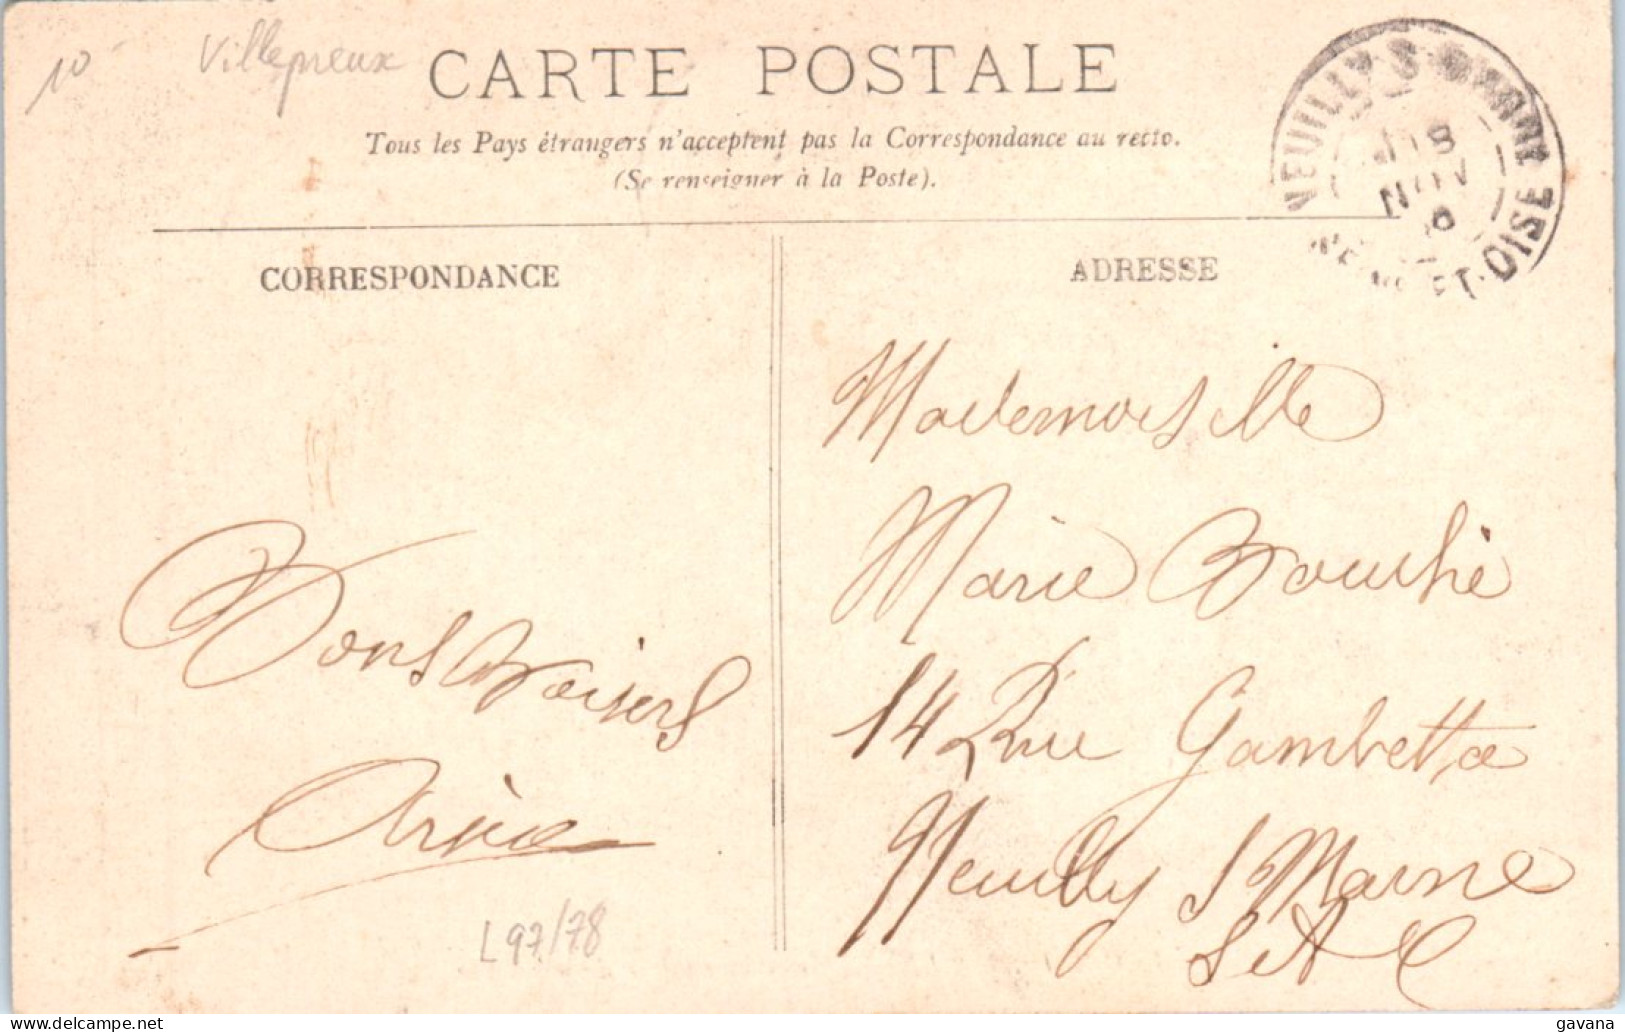 10
Villepreux
CARTE POSTALE
Tous les Pays étrangers n'acceptent pas la Correspondance au recto.
(Se renseigner à la Poste).
NEUILLY-S-MARNE
8
NOV
ET-OISE
CORRESPONDANCE
ADRESSE
Bons Baisers
Mademoiselle
Marie Bouché
14 Rue Gambetta
Neuilly S Marne
S et O
L97/78
delcampe.net
gavana